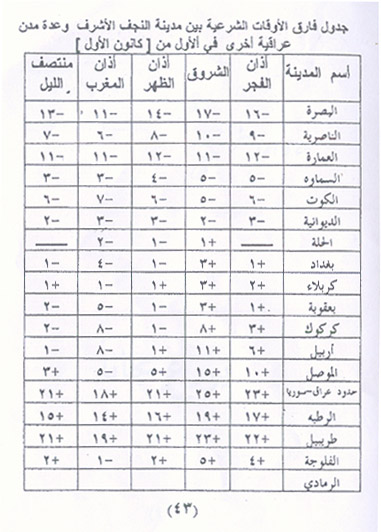 جدول فارق الأوقات الشرعية بين مدينة النجف الأشرف وعدة مدن
عراقية أخرى في الأول من [ كانون الأول ]
أسم المدينة أذان الفجر الشروق أذان الظهر أذان المغرب منتصف الليل
البصرة −١٦ −١٧ −١٤ −١١ −١٣
الناصرية −٩ −١٠ −٨ −٦ −٧
العمارة −١٢ −١١ −١٢ −١١ −١١
السماوه −٥ −٥ −٤ −٣ −٣
الكوت −٦ −٥ −٦ −٧ −٦
الديوانية −٣ −٢ −٣ −٣ −٢
الحلة — +١ −١ −٢ —
بغداد +١ +٣ −١ −٤ −١
كربلاء +٢ +٣ +١ −١ +١
بعقوبة +١ +٣ −١ −٥ −٢
كركوك +٣ +٨ −١ −٨ −٢
أربيل +٦ +١١ +١ −٨ −١
الموصل +١٠ +١٥ +٥ −٥ +٣
حدود عراق-سوريا +٢٣ +٢٥ +٢١ +١٨ +٢١
الرطبه +١٧ +١٩ +١٦ +١٤ +١٥
طريبيل +٢٢ +٢٣ +٢١ +١٩ +٢١
الفلوجة +٤ +٥ +٢ −١ +٢
الرمادي
(٤٣)